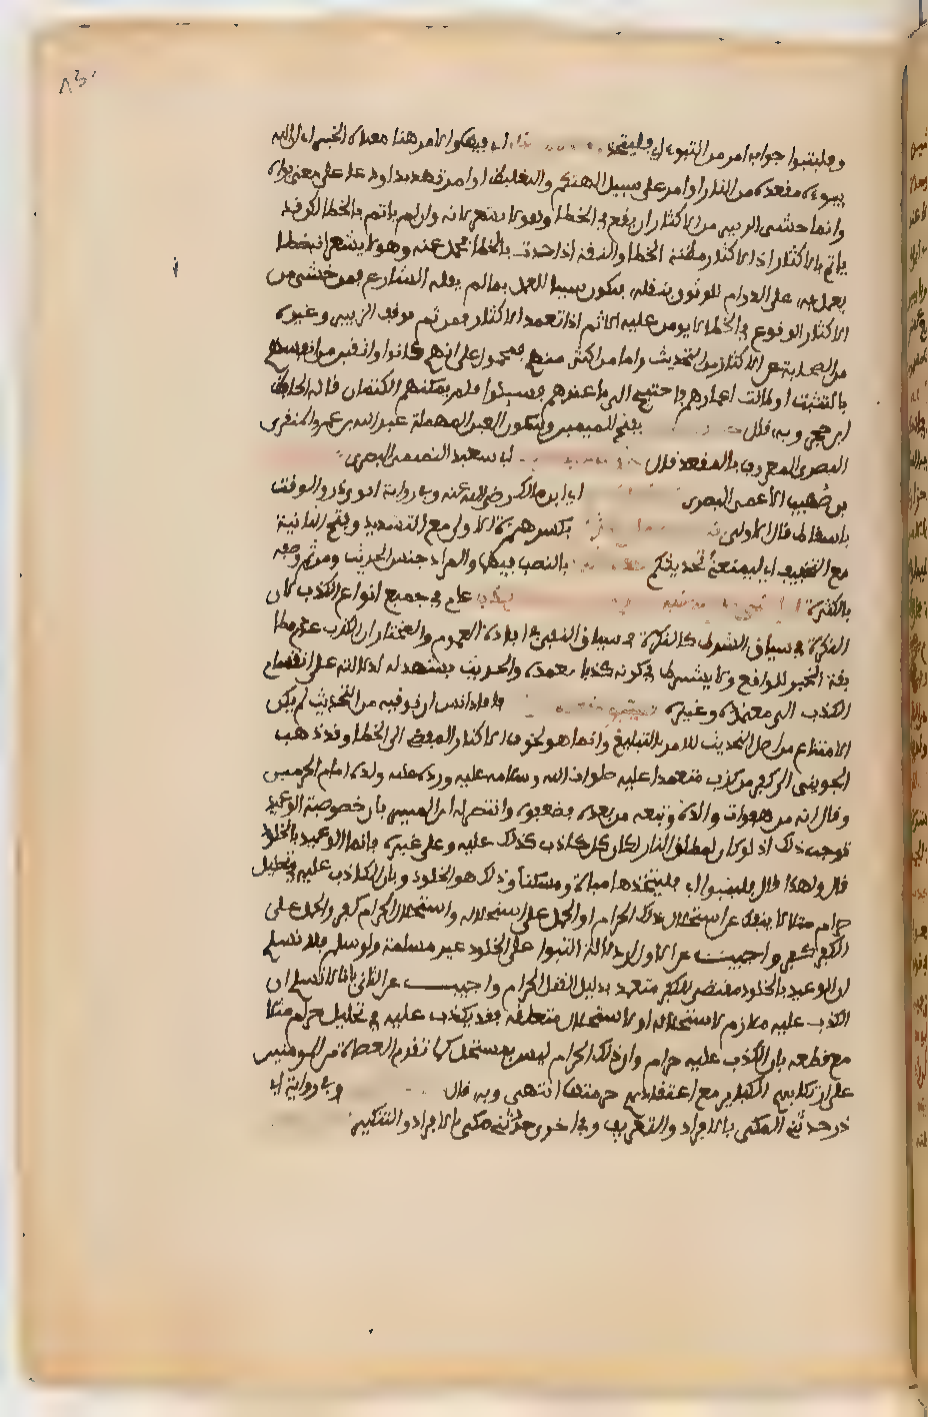 وفليتبوا جواب امر من التبوء اي فليتخذ اي فيها والامر هنا معناه الخبر اي ان الله
يبوءه مقعده من النار او امر على سبيل التهكم والتغليظ او امر تهديد او دعا على معنى بواه
وانما خشي الزبير من الاكثار ان يقع في الخطا وهو لا يشعر لانه وان لم ياثم بالخطا لكن قد
ياثم بالاكثار اذ الاكثار مظنة الخطا والثقة اذا حدث بالخطا فحمل عنه وهو لا يشعر انه خطا
يعمل به على الدوام للوثوق بنقله فيكون سببا للعمل بما لم يقله الشارع فمن خشي من
الاكثار الوقوع في الخطا لا يومن عليه الاثم اذا تعمد الاكثار فمن ثم توقف الزبير وغيره
من الصحابة عن الاكثار من التحديث واما من اكثر منهم فمحمول على انهم كانوا واثقين من انفسهم
بالتثبت او طالت اعمارهم فاحتيج الى ما عندهم فسيلوا فلم يمكنهم الكتمان قاله الحافظ
ابن حجر وبه قال بفتح الميمين وسكون العين المهملة عبد الله بن عمرو المنقري
البصري المعروف بالمقعد قال اي سعيد التميمي البصري
بن صهيب الاعمى البصري اي ابن مالك رضي الله عنه وفي رواية ابوي ذر والوقت
باسقاط قال الاولى بكسر همزة الاولى مع التشديد وفتح الثانية
مع التخفيف اي ليمنعني تحديثكم بالنصب فيهما والمراد جنس الحديث ومن ثم وصفه
بالكثرة عام في جميع انواع الكذب لان
النكرة في سياق الشرط كالنكرة في سياق النفي في افادة العموم والمختار ان الكذب عدم مطا
بقة الخبر للواقع ولا يشترط في كونه كذبا تعمده والحديث يشهد له لدلالته على انقسام
الكذب الى متعمد وغيره فافاد انس ان توقيه من التحديث لم يكن
الامتناع من اصل التحديث للامر بالتبليغ وانما هو لخوف الاكثار المفضي الى الخطا وقد ذهب
الجويني الى كفر من كذب متعمدا عليه صلوات الله وسلامه عليه ورده عليه ولده امام الحرمين
وقال انه من هفوات والده وتبعه من بعده فضعفوه وانتصر له ابن المنير بان خصوصية الوعيد
توجب ذلك اذ لو كان بمطلق النار لكان كل كاذب كذلك عليه وعلى غيره فانما الوعيد بالخلود
قال ولهذا قال فليتبوا اي فليتخذها مباءة ومسكنا وذلك هو الخلود وبان الكاذب عليه في تحليل
حرام مثلا لا ينفك عن استحلال ذلك الحرام او الحمل على استحلاله واستحلال الحرام كفر والحمل على
الكفر كفر واجيب عن الاول بان دلالة التبوا على الخلود غير مسلمة ولو سلم فلا نسلم
ان الوعيد بالخلود مقتض للكفر متعمد بدليل القتل الحرام واجيب عن الثاني بانا لا نسلم ان
الكذب عليه ملازم لاستحلاله او لاستحلال متعلقه فقد يكذب عليه في تحليل حرام مثلا
مع قطعه بان الكذب عليه حرام وان ذلك الحرام ليس بمستحل كما تقدم العصاة من المومنين
على ارتكابهم الكباير مع اعتقادهم حرمتها انتهى وبه قال وفي رواية ابي
ذر حدثني المكي بالافراد والتعريف وفي اخرى حدثني مكي بالافراد والتنكير